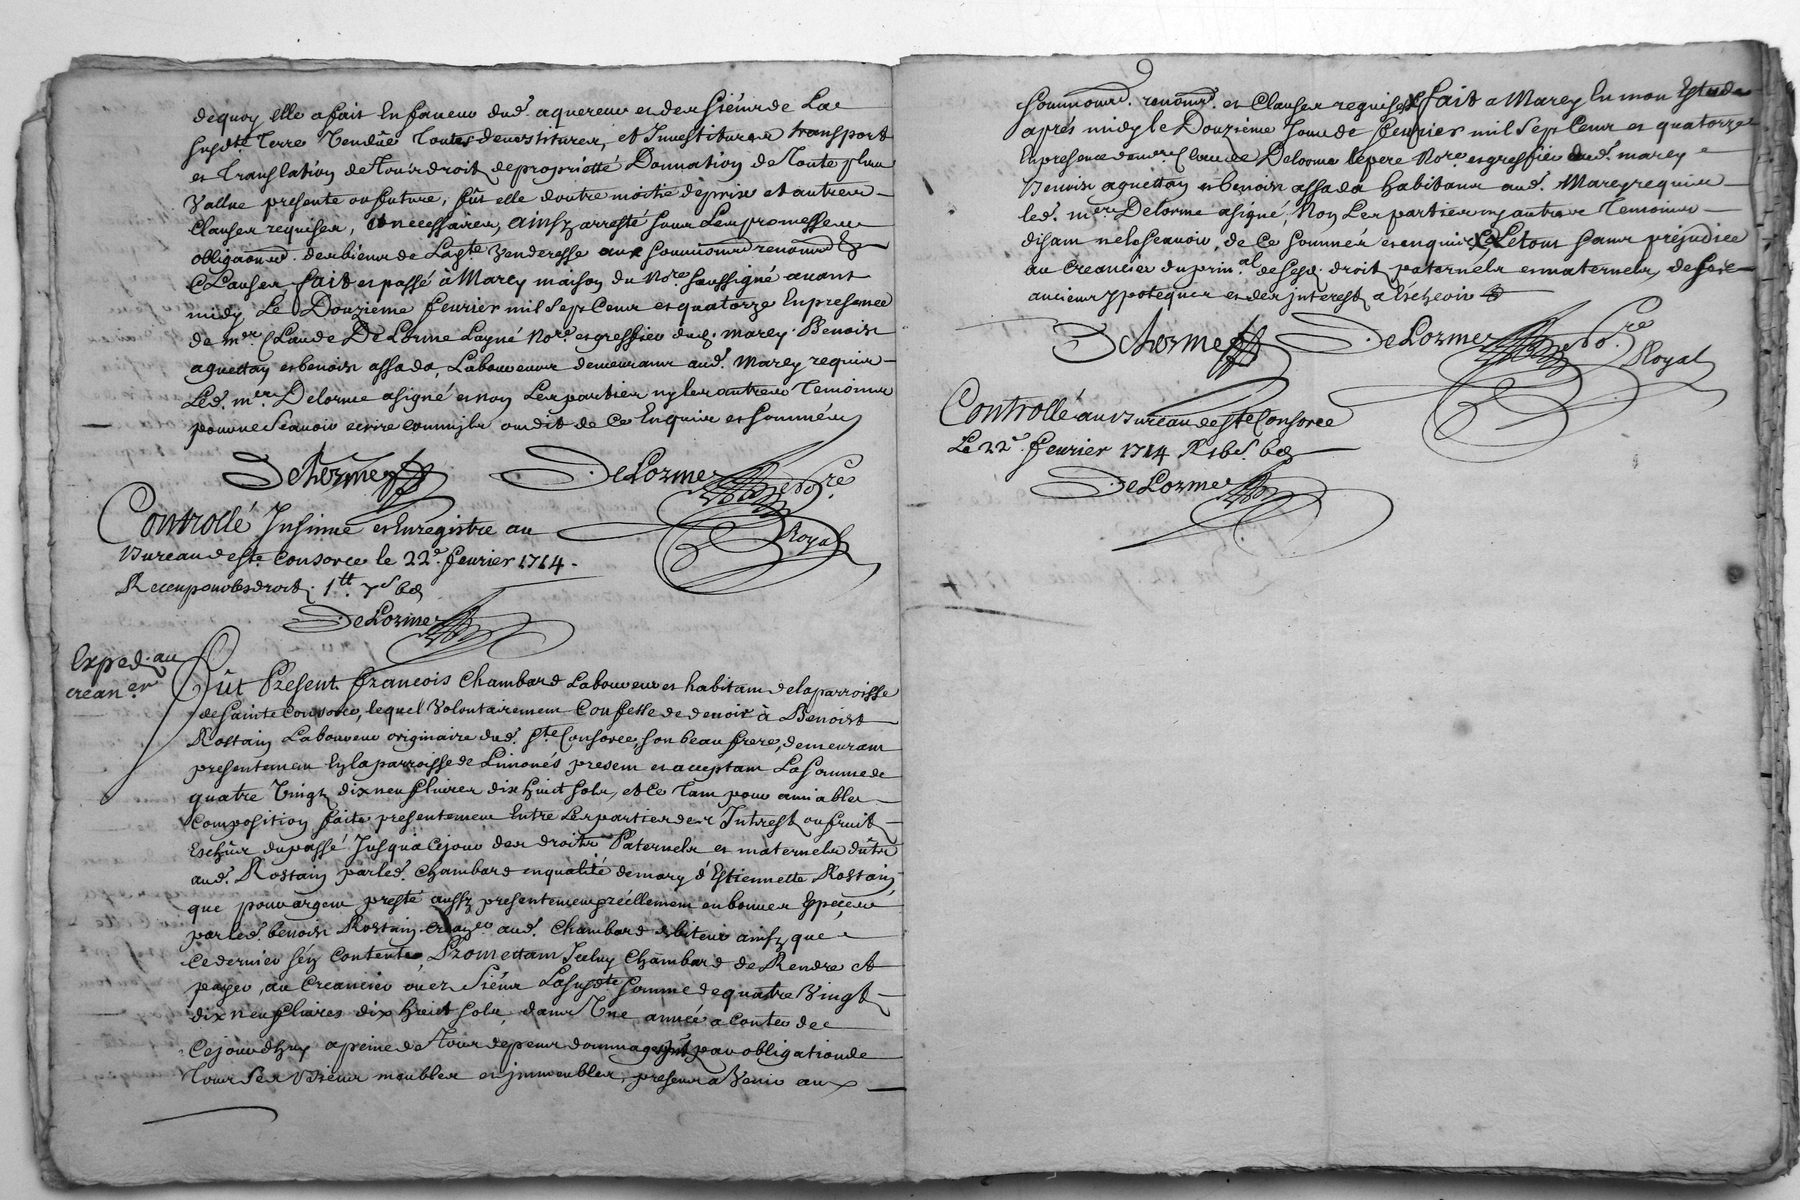 dequoy elle a fait en faveur dud. aquereur et des siens de La
susd.te Terre vendüe toutes devestitures, et Investitures transport
et translation de tous droit de proprietté Donnation de toute plus
vallue presente ou future, fut elle d'outre moitié de prix et autres
clauses requises, et necessaires, ainsy arresté sous Les promesses
obligaõns des biens de Lad.te venderesse aux soummõns renonõns et
Clauses fait et passé à Marcy maison du No.re soussigné avant
midy Le Douzieme fevrier mil sept Cens et quatorze En presence
de m.re Claude De Lorme Layné No.re et greffier dud. marcy Benoist
aguettan et benoist assada, Laboureurs demeurans aud. Marcy requis
Led. m.re Delorme a signé et non Les parties ny les autres Temoins
pour ne scavoir ecrire comm'ils ont dit de ce Enquis et sommés
Delorme DeLorme No.re
Royal
Controllé Insinué et Enregistre au
Bureau de S.te Consorce le 22.e fevrier 1714
Receu pour les droits 1.tt 7.s 6.d
DeLorme
Exped. au
crean.er
Fût Present francois Chambard Laboureur et habitant de la parroisse
de Sainte Consorce, lequel volontairement Confesse de devoir à Benoist
Rostain Laboureur originaire dud. S.te Consorce, son beau frere, demeurant
presentement En la parroisse de Limonés present et acceptant La somme de
quatre vingt dix neuf livres dix huict sols, et ce tant pour amiable
composition faite presentement Entre Les parties des Intrest ou fruit
Escheus du passé Jusqu'a ce jour des droits Paternels et maternels dûts
aud. Rostain par led. Chambard en qualité de mary d'Estiennette Rostain
que pour argent presté aussy presentement reellement en bonnes Especes
par led. benoist Rostain creancier aud. Chambard debiteur ainsy que
ce dernier s'en contente Promettant Iceluy Chambard de Rendre et
payer, au Creancier ou es Siens La susd.te somme de quatre vingt
dix neuf livres dix huict sols, dans Une année a conter de
ce jourdhuy a peine de tous depens dommages par obligation de
tous ses Biens meubles et immeubles, presens a venir aux
soummõns. renonõns. et Clauses requises fait a Marcy En mon Estude
aprés midy le Douzieme Jour de fevrier mil sept Cens et quatorze
En presence de m.re Claude Delorme le pere No.re et greffier dud. marcy
Benoist aguettan et benoist assada habitans aud. Marcy requis
led. m.re Delorme a signé, Non Les parties ny autres Temoins
disant ne le scavoir, de ce sommés et enquis Le tout sans prejudice
au Creancier du prin.al de sesd. droit paternels et maternels, de ses
anciens ypoteques et des interest a Escheoir
Delorme DeLorme No.re
Royal
Controllé au Bureau de S.te Consorce
Le 22.e fevrier 1714 R 16.s 6.d
DeLorme